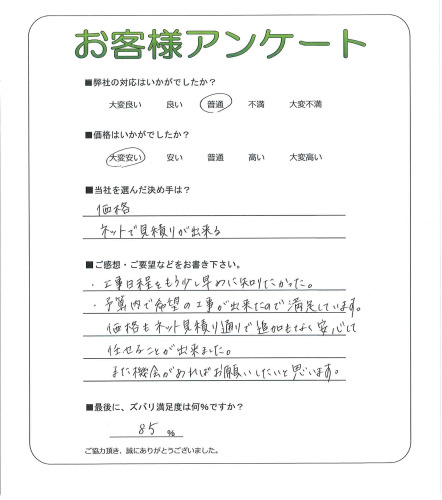 お客様アンケート
■弊社の対応はいかがでしたか？
大変良い 良い 普通 不満 大変不満
■価格はいかがでしたか？
大変安い 安い 普通 高い 大変高い
■当社を選んだ決め手は？
価格
ネットで見積りが出来る
■ご感想・ご要望などをお書き下さい。
・工事日程をもう少し早めに知りたかった。
・予算内で希望の工事が出来たので満足しています。
価格もネット見積り通りで追加もなく安心して
任せることが出来ました。
また機会があればお願いしたいと思います。
■最後に、ズバリ満足度は何%ですか？
85 %
ご協力頂き、誠にありがとうございました。